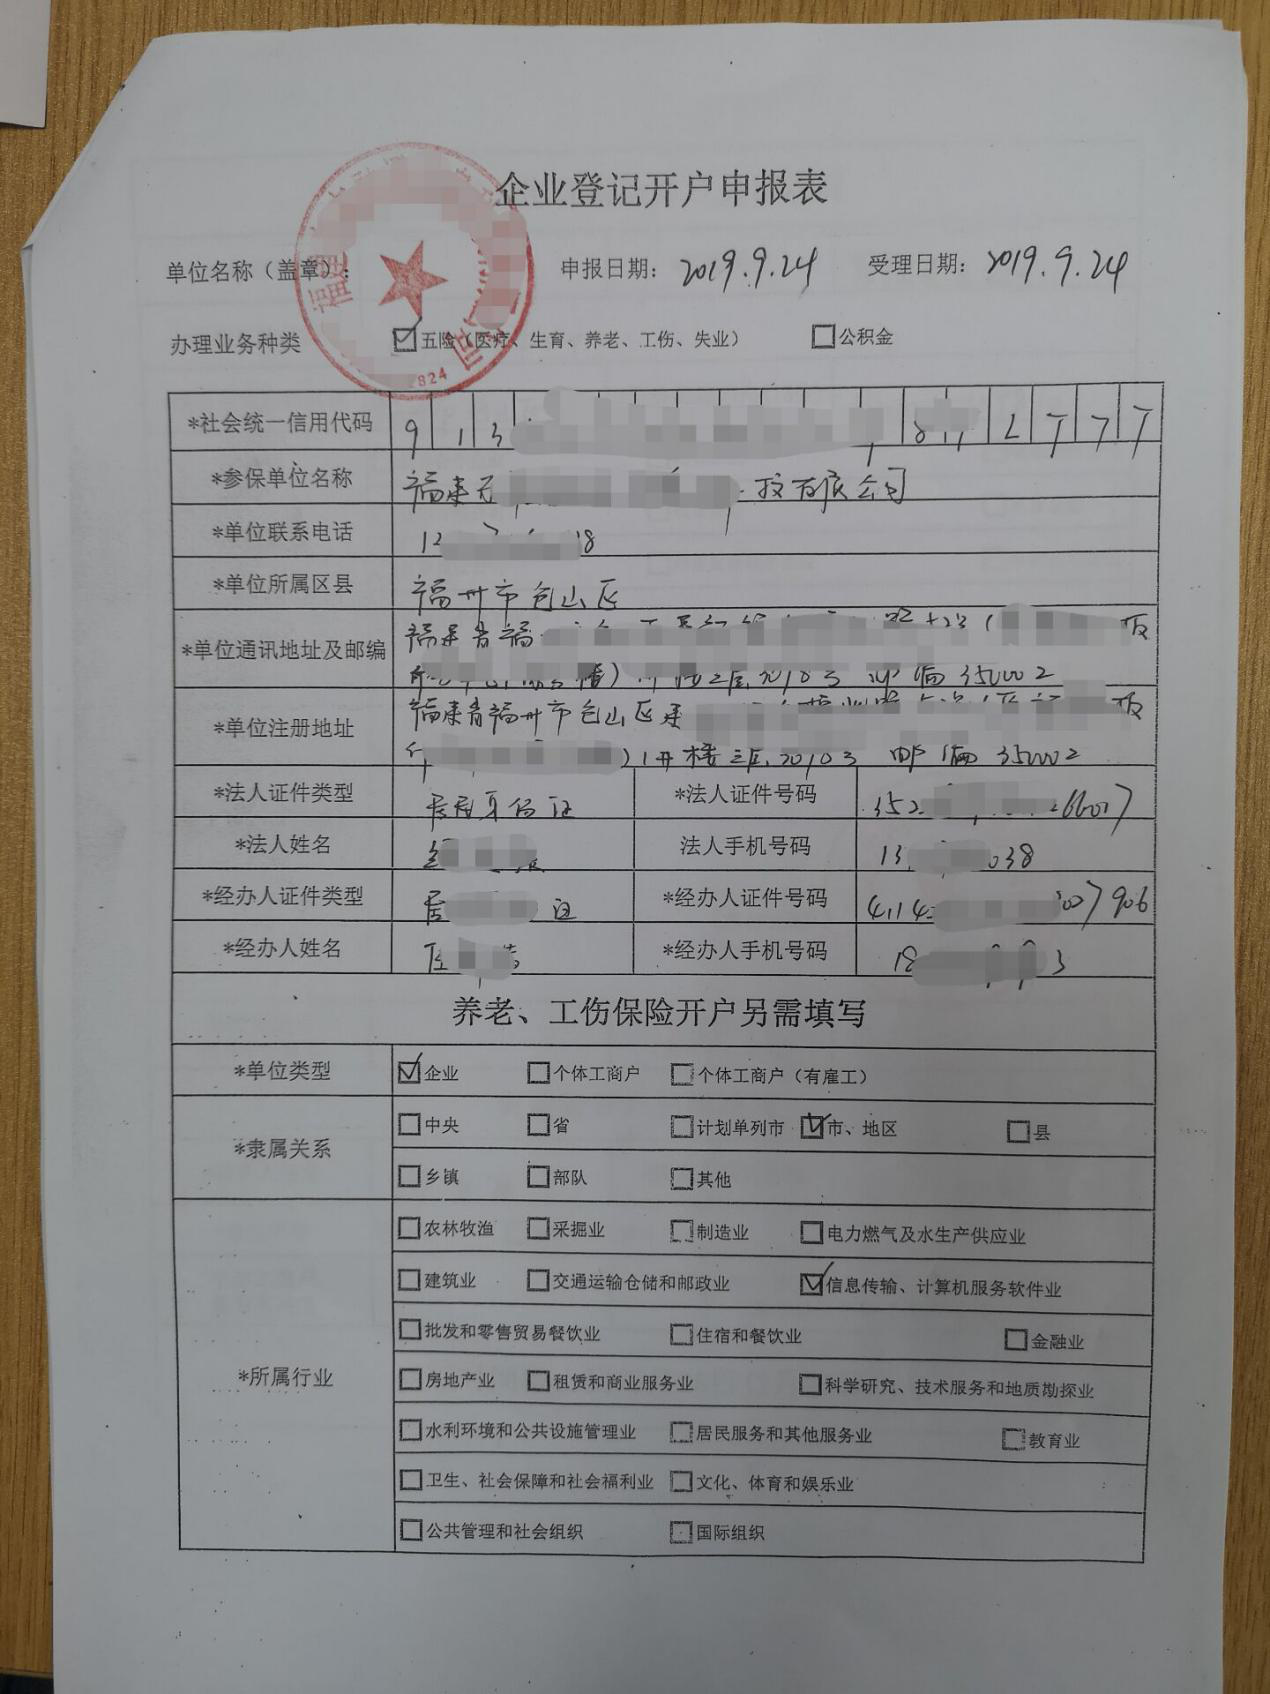 企业登记开户申报表
单位名称（盖章）： 申报日期：2019.9.24 受理日期：2019.9.24
办理业务种类 五险（医疗、生育、养老、工伤、失业） 公积金
*社会统一信用代码 913
*参保单位名称 福建 有限公司
*单位联系电话
*单位所属区县 福州市仓山区
*单位通讯地址及邮编 福建省福
350002
*单位注册地址 福建省福州市仓山区建
楼 邮编 350002
*法人证件类型 居民身份证 *法人证件号码 352
*法人姓名 法人手机号码 13 038
*经办人证件类型 居 证 *经办人证件号码 7906
*经办人姓名 *经办人手机号码 18 3
养老、工伤保险开户另需填写
*单位类型 企业 个体工商户 个体工商户（有雇工）
*隶属关系 中央 省 计划单列市 市、地区 县
乡镇 部队 其他
*所属行业 农林牧渔 采掘业 制造业 电力燃气及水生产供应业
建筑业 交通运输仓储和邮政业 信息传输、计算机服务软件业
批发和零售贸易餐饮业 住宿和餐饮业 金融业
房地产业 租赁和商业服务业 科学研究、技术服务和地质勘探业
水利环境和公共设施管理业 居民服务和其他服务业 教育业
卫生、社会保障和社会福利业 文化、体育和娱乐业
公共管理和社会组织 国际组织